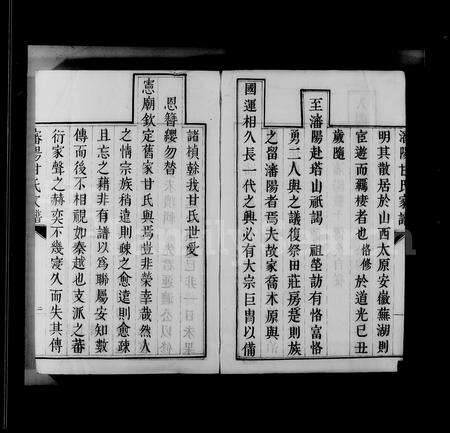 瀋陽甘氏家譜
明其散居於山西太原安徽蕪湖則
宦遊而羈棲者也恪修於道光己丑
歲隨
至瀋陽赴塔山祇謁祖塋訪有恪富恪
勇二人與之議復祭田莊房蓋則族
之留瀋陽者焉夫故家喬木原與
國運相久長一代之興必有大宗巨冑以備
諸楨榦我甘氏世受
恩簪纓勿替
憲廟欽定舊家甘氏與焉豈非榮幸哉然人
之情宗族稍遠則疎之愈遠則愈疎
且忘之藉非有譜以為聯屬安知數
傳而後不相視如秦越也支派之蕃
衍家聲之赫奕不幾寖久而失其傳
瀋陽甘氏家譜
二